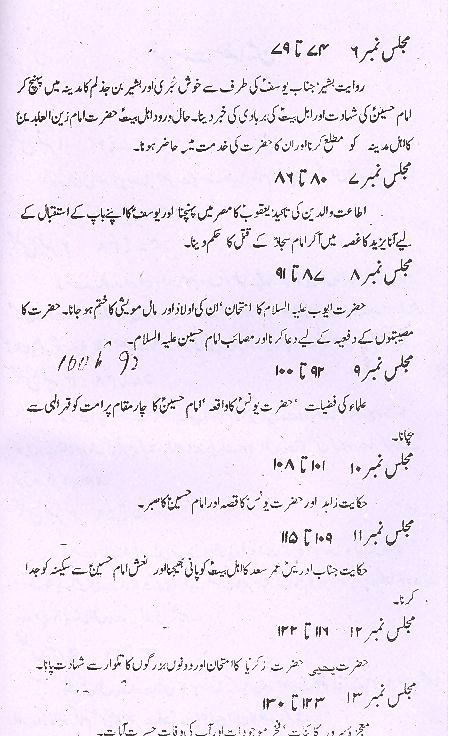 مجلس نمبر ۶ ۷۴ تا ۷۹
روایت بشیر جناب یوسفؑ کی طرف سے خوش خبری اور بشیر بن جذلم کا مدینہ میں پہنچ کر
امام حسینؑ کی شہادت اور اہل بیتؑ کی بربادی کی خبر دینا۔ حال ورود اہل بیتؑ حضرت امام زین العابدینؑ
کا اہل مدینہ کو مطلع کرنا اور ان کا حضرت کی خدمت میں حاضر ہونا۔
مجلس نمبر ۷ ۸۰ تا ۸۶
اطاعت والدین کی تاکید یعقوبؑ کا مصر میں پہنچنا اور یوسفؑ کا اپنے باپ کے استقبال کے
لیے آنا یزید کا غصہ میں آکر امام سجادؑ کے قتل کا حکم دینا۔
مجلس نمبر ۸ ۸۷ تا ۹۱
حضرت ایوب علیہ السلام کا امتحان ' ان کی اولاد اور مال مویشی کا ختم ہو جانا۔ حضرت کا
مصیبتوں کے دفعیہ کے لیے دعا کرنا اور مصائب امام حسین علیہ السلام۔
مجلس نمبر ۹ ۹۲ تا ۱۰۰ 92 تا 100
علماء کی فضیلت ' حضرت یونسؑ کا واقعہ ' امام حسینؑ کا چار مقام پر امت کو قہر الٰہی سے
بچانا۔
مجلس نمبر ۱۰ ۱۰۱ تا ۱۰۸
حکایت زاہد اور حضرت یونسؑ کا قصہ اور امام حسینؑ کا صبر۔
مجلس نمبر ۱۱ ۱۰۹ تا ۱۱۵
حکایت جناب ادریسؑ عمر سعد کا اہل بیتؑ کو پانی بھیجنا اور نعش امام حسینؑ سے سکینہ کو جدا
کرنا۔
مجلس نمبر ۱۲ ۱۱۶ تا ۱۲۲
حضرت یحییٰؑ حضرت زکریاؑ کا امتحان اور دونوں بزرگوں کا تلوار سے شہادت پانا۔
مجلس نمبر ۱۳ ۱۲۳ تا ۱۳۰
معجزہ سرور کائنات ' فخر موجودات اور آپ کی وفات حسرت آیات۔